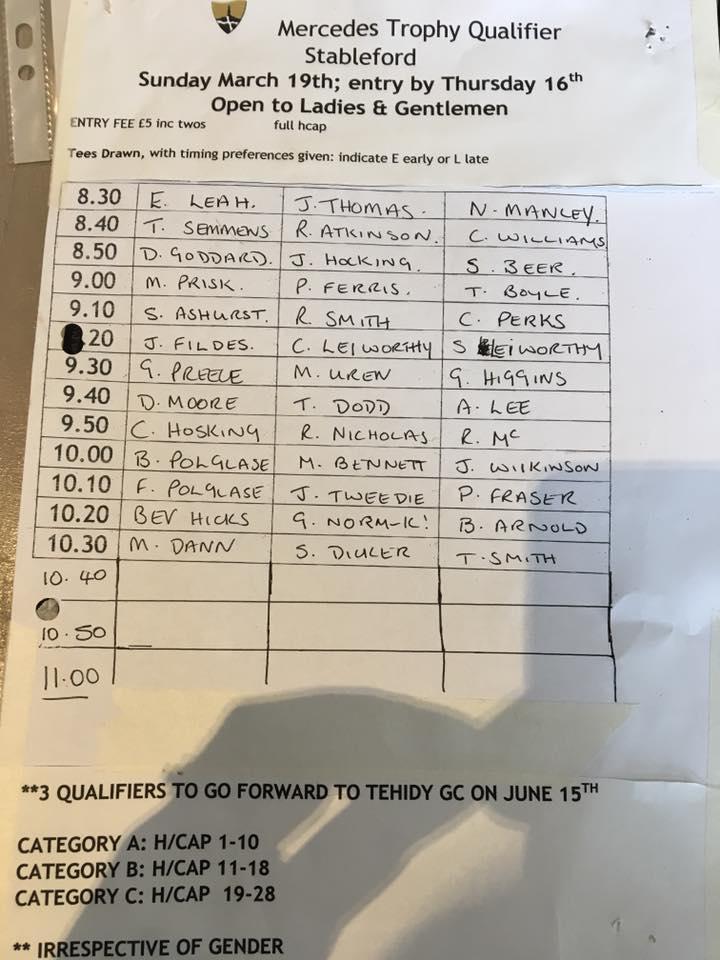 Mercedes Trophy Qualifier
Stableford
Sunday March 19th; entry by Thursday 16th
Open to Ladies & Gentlemen
ENTRY FEE £5 inc twos full hcap
Tees Drawn, with timing preferences given: indicate E early or L late
8.30 E. LEAH. J. THOMAS. N. MANLEY.
8.40 T. SEMMENS R. ATKINSON. C. WILLIAMS
8.50 D. GODDARD. J. HOCKING. S. BEER.
9.00 M. PRISK. P. FERRIS. T. BOYLE.
9.10 S. ASHURST. R. SMITH C. PERKS
.20 J. FILDES. C. LEIWORTHY S LEIWORTHY
9.30 G. PREECE M. UREN G. HIGGINS
9.40 D. MOORE T. DODD A. LEE
9.50 C. HOSKING R. NICHOLAS R. Mc
10.00 B. POLGLASE M. BENNETT J. WILKINSON
10.10 F. POLGLASE J. TWEEDIE P. FRASER
10.20 BEV HICKS G. B. ARNOLD
10.30 M. DANN S. T. SMITH
10.40
10.50
11.00
**3 QUALIFIERS TO GO FORWARD TO TEHIDY GC ON JUNE 15TH
CATEGORY A: H/CAP 1-10
CATEGORY B: H/CAP 11-18
CATEGORY C: H/CAP 19-28
** IRRESPECTIVE OF GENDER